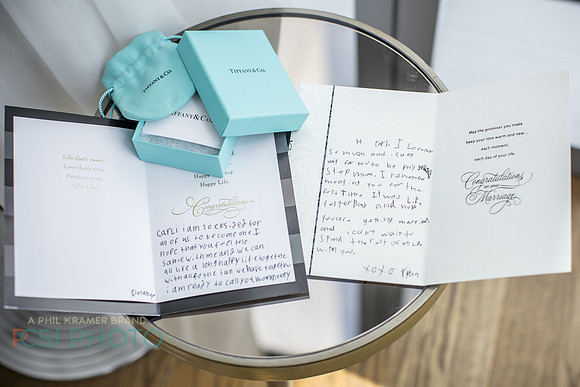 TIFFANY & CO.
TIFFANY & CO.
TIFFANY & CO.
Life that's sweet,
Love that's true,
Happy Life.
Congratulations
CARLI i am so exsized for
all of us to become one. I
hope that you feel the
same with me and we can
all live a long happy life togethe
with all of the fun we have together
i am ready to call you mommey
Delaney
Hi Carli, I Love you
so much and i cant
wait for you to be my
step mom. I remember
meeting you for the
first time. It was like
yesterday and now
you're getting married
and i can't wait to
spend the rest of my life
with you.
XOXO
May the promises you make
keep your love warm and new...
each moment,
each day of your life.
Congratulations
on your
Marriage
A PHIL KRAMER BRAND
CSI PHOTO